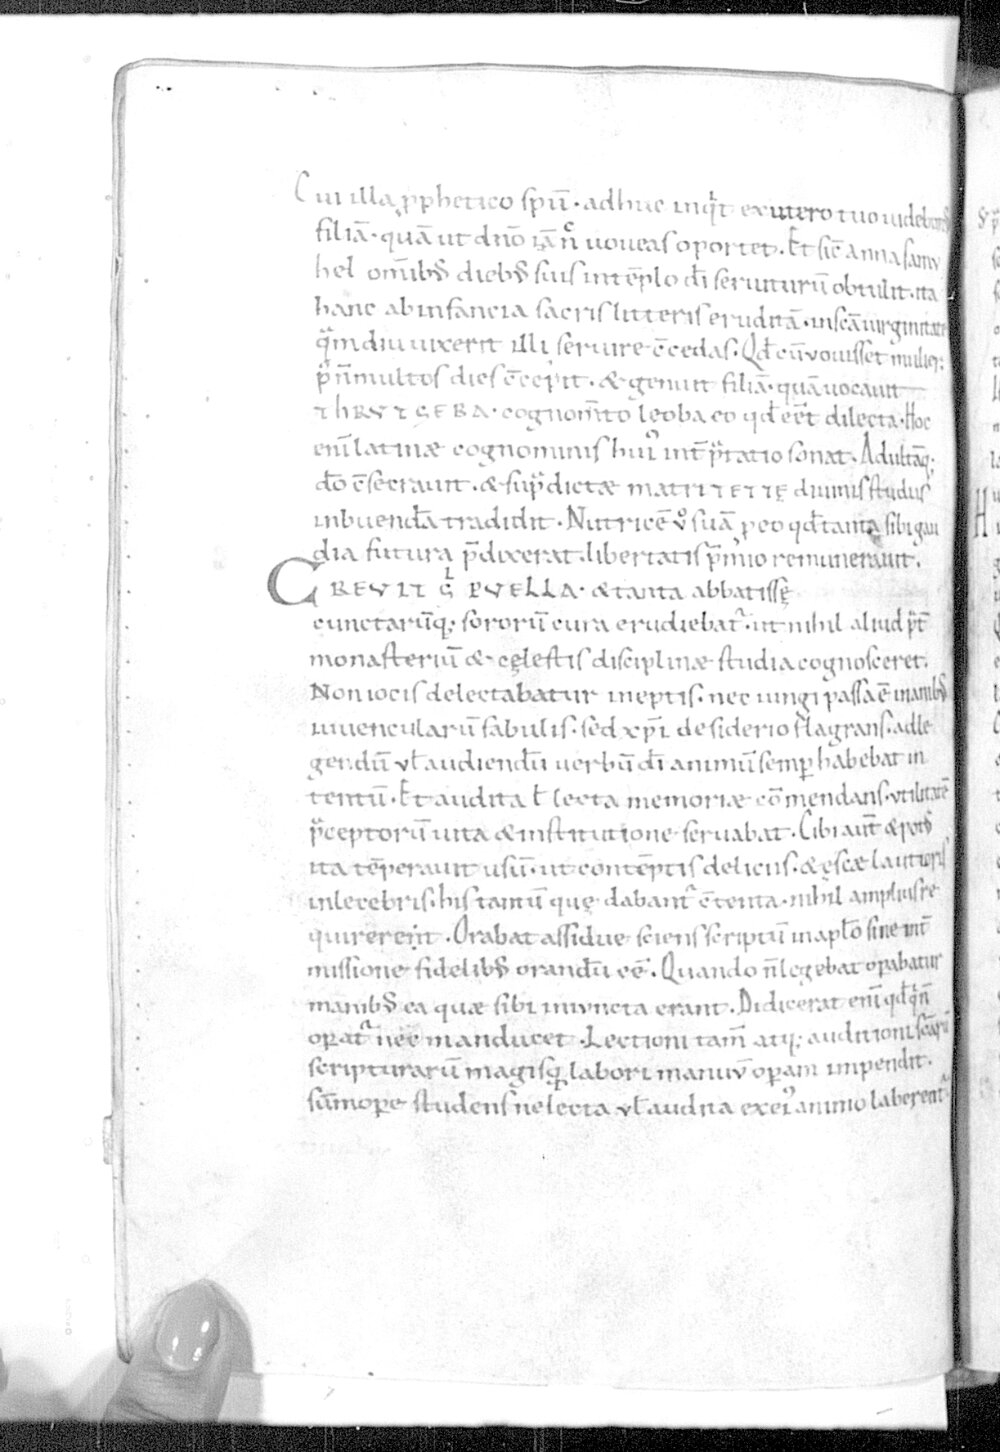 Cui illa ꝓphetico spū · adhuc inq̇t ex utero tuo uidebis
filiā · quā ut dn̄o iā nc̄ uoueas oportet . Et sic̄ anna samu
hel omīb; dieb; suis in tēplo dī seruiturū obtulit · ita
hanc ab infancia sacris litteris eruditā · in sc̄a uirginitate
qͣmdiu uixerit illi seruire c̄cedas . Qd̄ cū uouisset mulier;
p̄ n̄ multos dies c̄cepit · & genuit filiā · quā uocauit
ThRVTGEBA · cognom̄to leoba eo qd̄ eēt dilecta · Hoc
enī latinæ cognominis hui᾽ int̄p̄tatio sonat · Adultāq;
dō c̄secrauit · & sup̄dictæ MATRI TETTE diuinis studiis
inbuendā tradidit · Nutricē v̊ suā ꝓ eo qd̄ tanta sibi gau
dia futura p̄dixerat · libertatis p̄mio remunerauit .
CREVIT Gͥ PVELLA · & tanta abbatissę
cunctarūq; sororū cura erudiebat᾽ · ut nihil aliud p̄t̄
monasteriū & cęlestis disciplinæ studia cognosceret .
Non iocis delectabatur ineptis · nec iungi passa ē inanib;
iuuencularū fabulis · sed xp̄i desiderio flagrans · ad le
gendū vł audiendū uerbū dī animū semꝑ habebat in
tentū · Et audita ł lecta memoriæ cōmendans · utilitatē
p̄ceptorū uita & institutione seruabat · Cibi aūt & pot᾽
ita tēperauit usū · ut contēptis deliciis · & escæ lautioris
inlecebris · his tantū quę dabant᾽ c̄tenta · nihil amplius re
quirerent · Orabat assidue sciens scriptū in aplō sine int̄
missione fidelib; orandū eē · Quando n̄ legebat opabatur
manib; ea quæ sibi iniuncta erant · Didicerat enī qd̄ q̇ n̄
opat᾽ nec manducet · Lectioni tam̄ atq; auditioni sc̄arū
scripturarū magis qͣ labori manuū opam impendit .
sūmope studens ne lecta vł audita ex ei᾽ animo laberent᾽